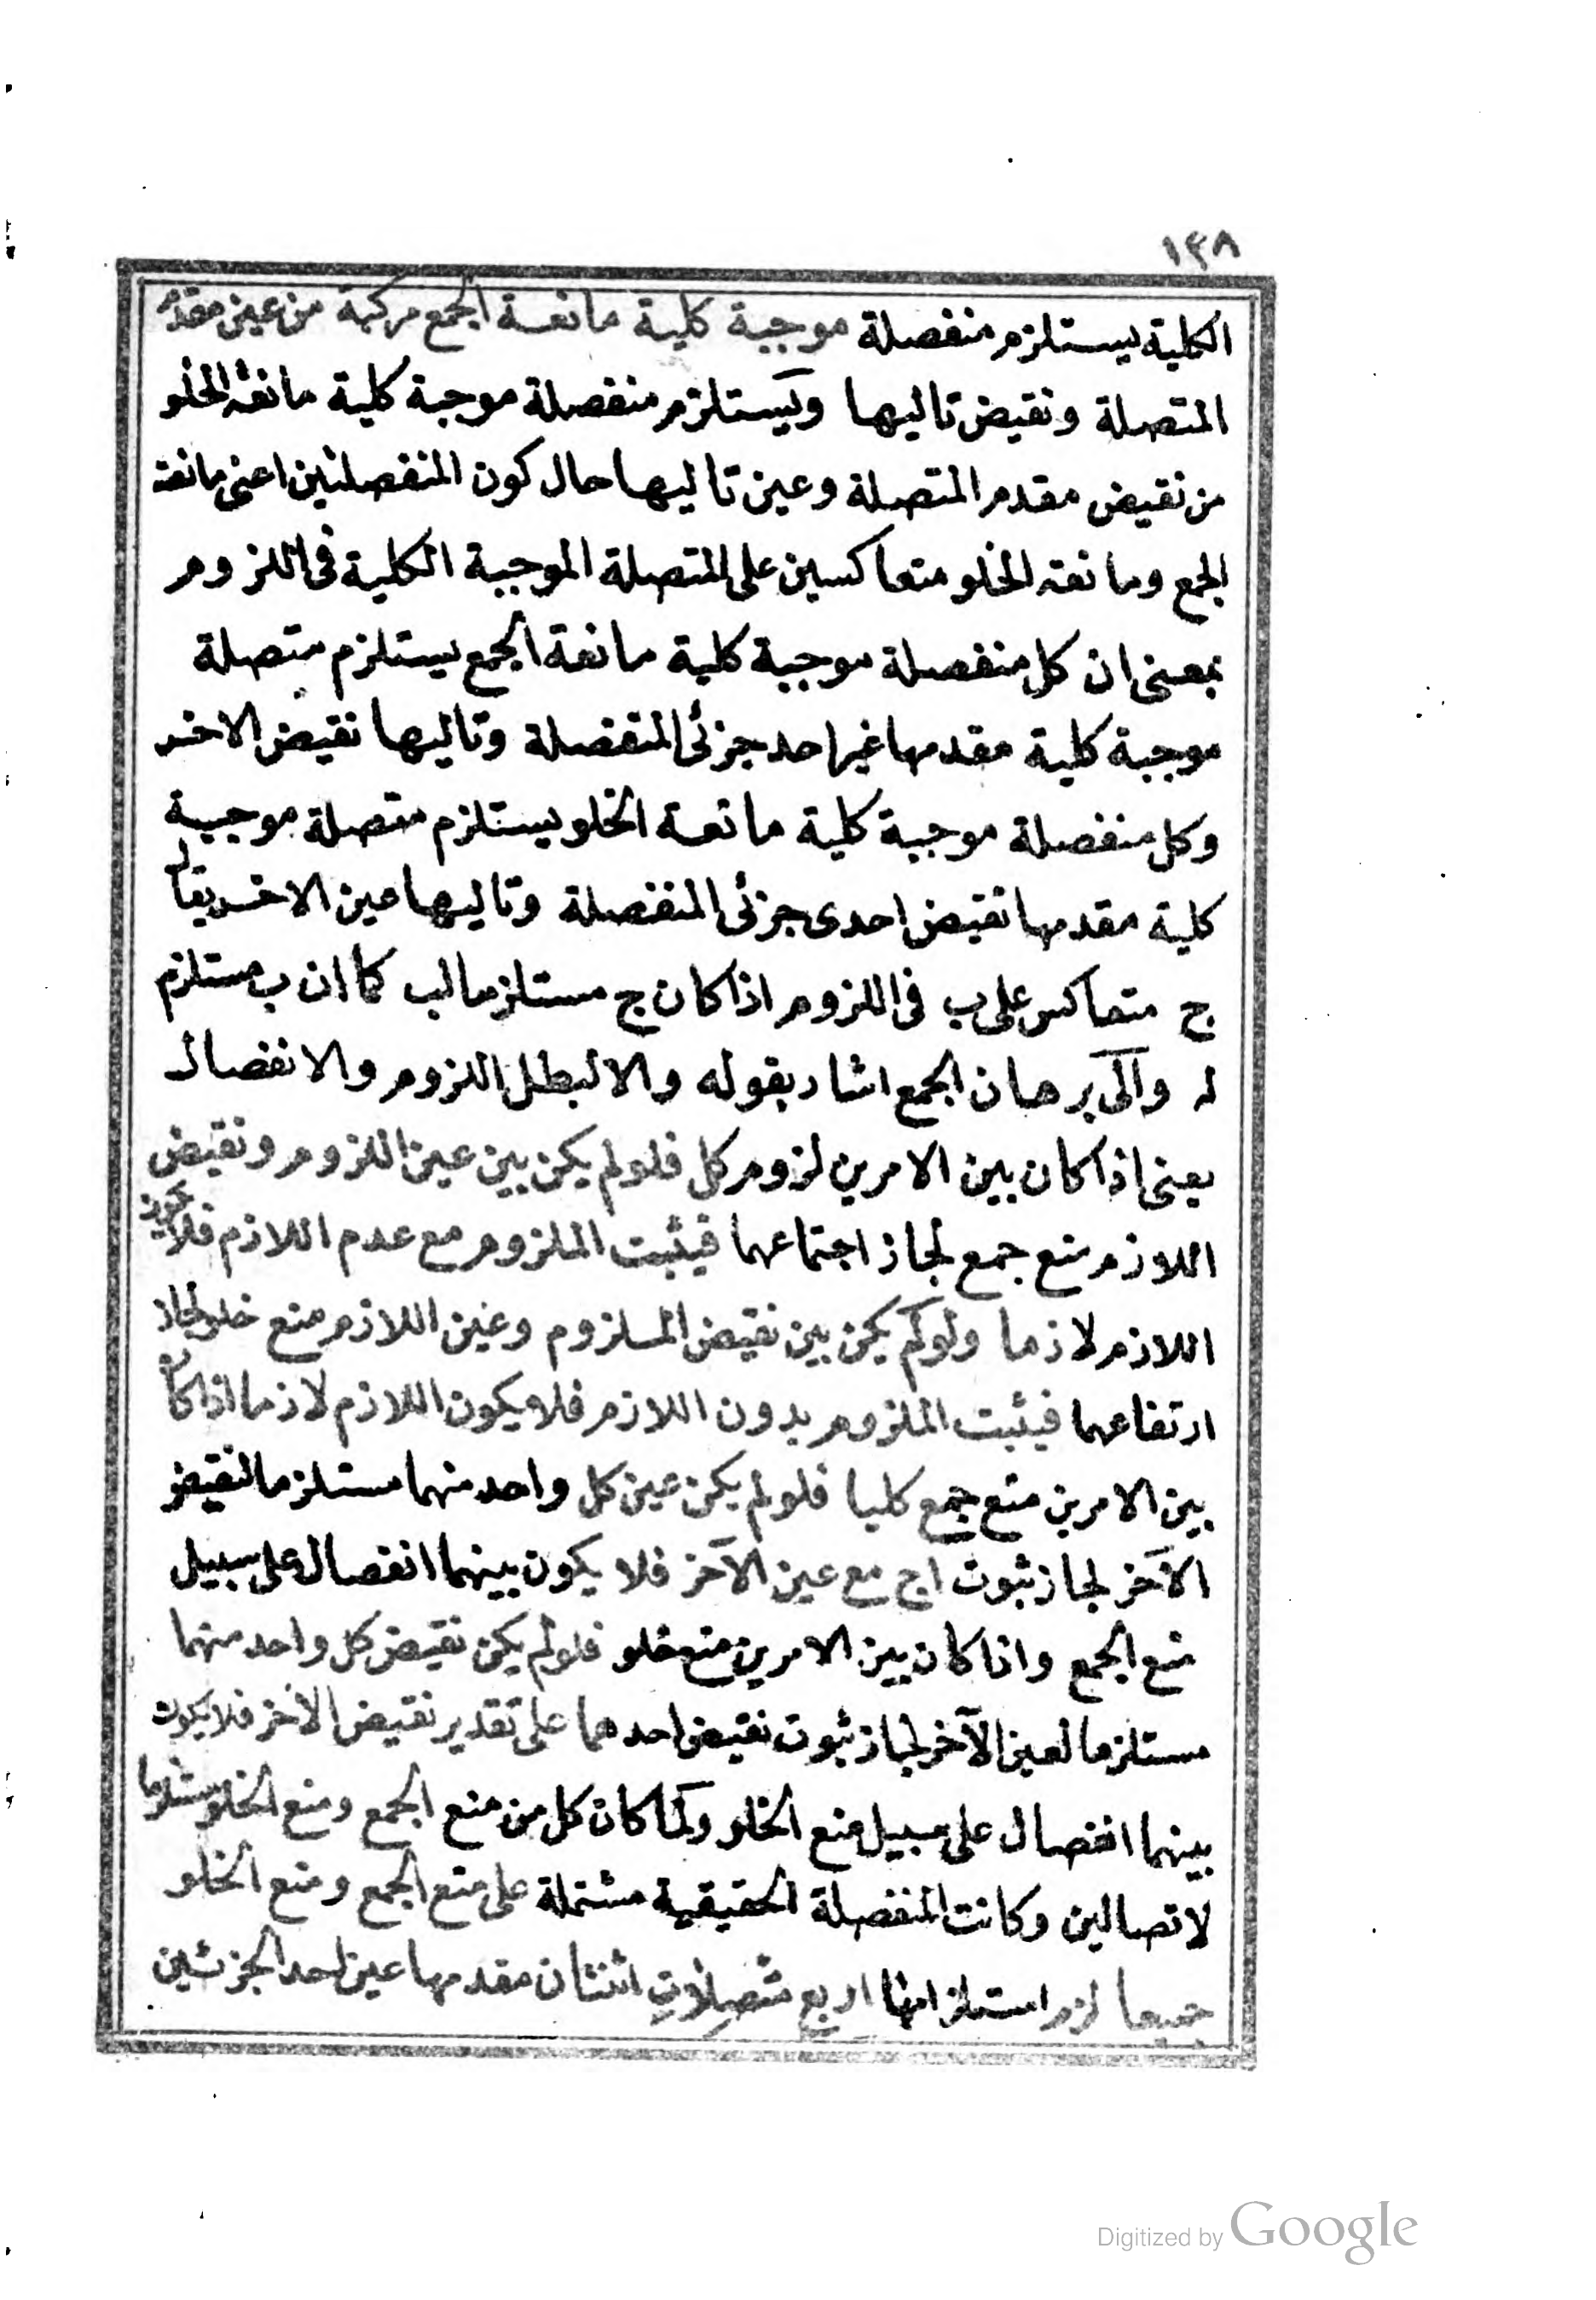 ١٣٨
الكلية يستلزم منفصلة موجبة كلية مانعة الجمع مركبة من عين مقدم
المتصلة ونقيض تاليها ويستلزم منفصلة موجبة كلية مانعة الخلو
من نقيض مقدم المتصلة وعين تاليها حال كون المنفصلتين اعنى مانعة
الجمع ومانعة الخلو متعاكسين على المتصلة الموجبة الكلية فى اللزوم
بمعنى ان كل منفصلة موجبة كلية مانعة الجمع يستلزم متصلة
موجبة كلية مقدمها غير احد جزئى المنفصلة وتاليها نقيض الاخر
وكل منفصلة موجبة كلية مانعة الخلو يستلزم متصلة موجبة
كلية مقدمها نقيض احدى جزئى المنفصلة وتاليها عين الاخر يقال
ج متعاكس على ب فى اللزوم اذا كان ج مستلزما لب كما ان ب مستلزم
له والى برهان الجمع اشار بقوله والا لبطل اللزوم والانفصال
يعنى اذا كان بين الامرين لزوم كل فلو لم يكن بين عين اللزوم ونقيض
اللازم منع جمع لجاز اجتماعهما فيثبت الملزوم مع عدم اللازم فلا يكون
اللازم لازما ولو لم يكن بين نقيض الملزوم وعين اللازم منع خلو لجاز
ارتفاعهما فيثبت الملزوم بدون اللازم فلا يكون اللازم لازما اذا كان
بين الامرين منع جمع كليا فلو لم يكن عين كل واحد منهما مستلزما لنقيض
الآخر لجاز ثبوت اج مع عين الآخر فلا يكون بينهما انفصال على سبيل
منع الجمع واذا كان بين الامرين منع خلو فلو لم يكن نقيض كل واحد منهما
مستلزما لعين الآخر لجاز ثبوت نقيض احدهما على تقدير نقيض الآخر فلا يكون
بينهما انفصال على سبيل منع الخلو ولما كان كل من منع الجمع ومنع الخلو مستلزما
لاتصالين وكانت المنفصلة الحقيقية مشتملة على منع الجمع ومنع الخلو
جميعا لزم استلزامها اربع متصلات اثنتان مقدمها عين احد الجزئين
Digitized by Google